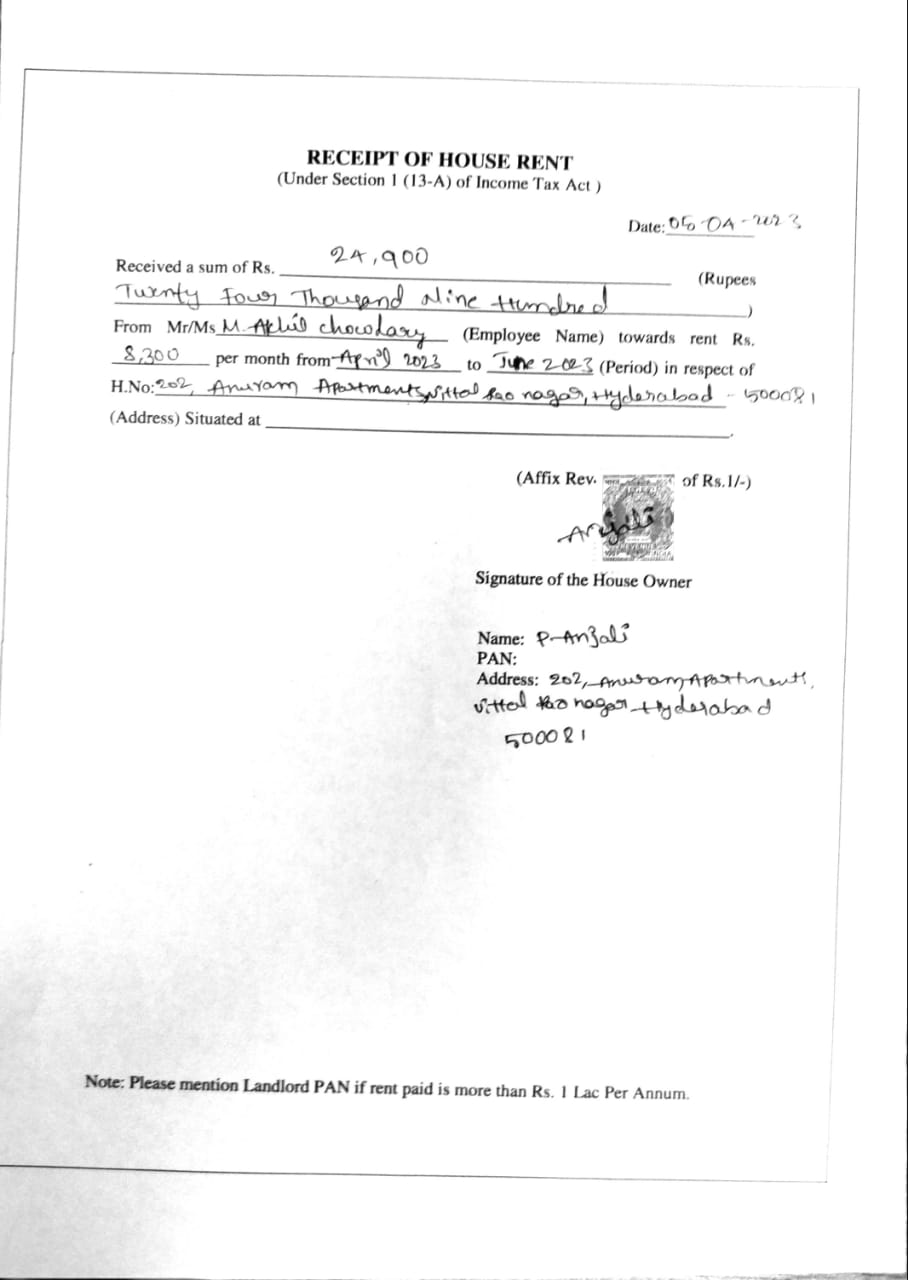 RECEIPT OF HOUSE RENT
(Under Section 1 (13-A) of Income Tax Act )
Date: 05-04-2023
Received a sum of Rs. 24,900 (Rupees
Twenty Four Thousand Nine Hundred )
From Mr/Ms M. Akhil chowdary (Employee Name) towards rent Rs.
8,300 per month from April 2023 to June 2023 (Period) in respect of
H.No: 202, Anuram Apartments, vittal Rao nagar, Hyderabad - 500081
(Address) Situated at .
(Affix Rev. of Rs.1/-)
Anjali
Signature of the House Owner
Name: P-Anjali
PAN:
Address: 202, Anuram Apartments,
vittal Rao nagar Hyderabad
500081
Note: Please mention Landlord PAN if rent paid is more than Rs. 1 Lac Per Annum.